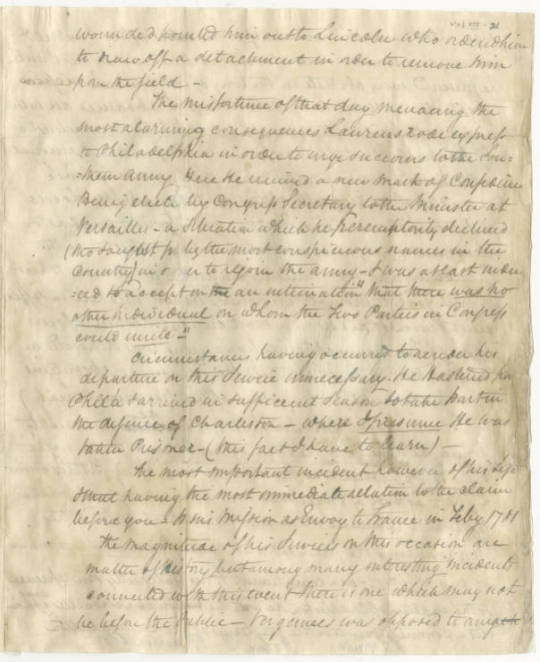 wounded pointed him out to Lincoln who ordered him
to draw off a detachment in order to remove him
from the field —
The misfortune of that day menacing the
most alarming consequences Laurens rode express
to Philadelphia in order to urge succours to the Sou=
=thern Army Here He received a new mark of Confidence
Being elected by Congress Secretary to the Minister at
Versailles – a situation which he peremptorily declined
(tho sought for by the most conspicuous names in the
Country) in order to rejoin the army – & was at last
to accept on the an intimation "that there was no
other individual on whom the two Parties in Congress
could unite –"
Circumstances having occurred to render his
departure on this Service unnecessary. He Hastened from
Phila & arrived in sufficient season to take part in
the defence of Charleston – where I presume He was
taken Prisoner – (this fact I have to learn) —
The most important incident however of his life
& that having the most immediate relation to the claim
before you – is his Mission as Envoy to France in Feby 1781
The magnitude of his Services on this occasion are
matter of history, but among many interesting incidents
connected with this event there is one which may not
be before the Public – Vergennes was opposed to any